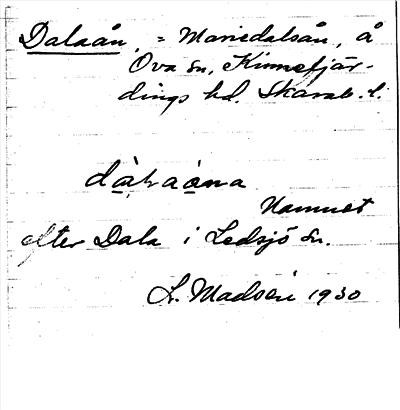 Dalaån, = Mariedalsån, å
Ova sn, Kinnefjär-
dings hd. Skarab. l.
dàlaåna
Namnet
efter Dala i Ledsjö sn.
L. Madsén 1930